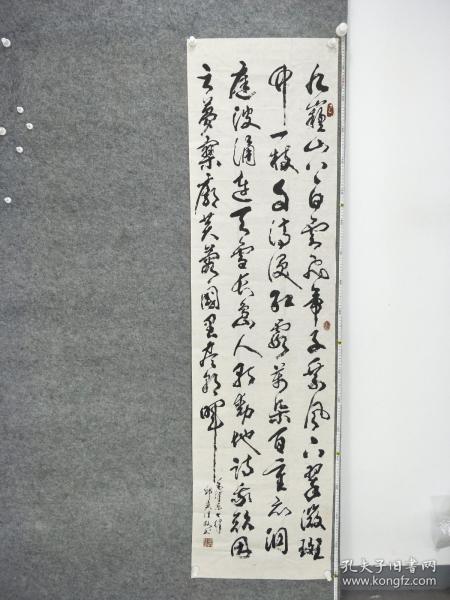 九嶷山上白雲飛帝子乘風下翠微斑
竹一枝千滴淚紅霞萬朵百重衣洞
庭波涌連天雪長島人歌動地詩我欲因
之夢寥廓芙蓉國里盡朝暉
毛澤东七律
孔夫子旧书网